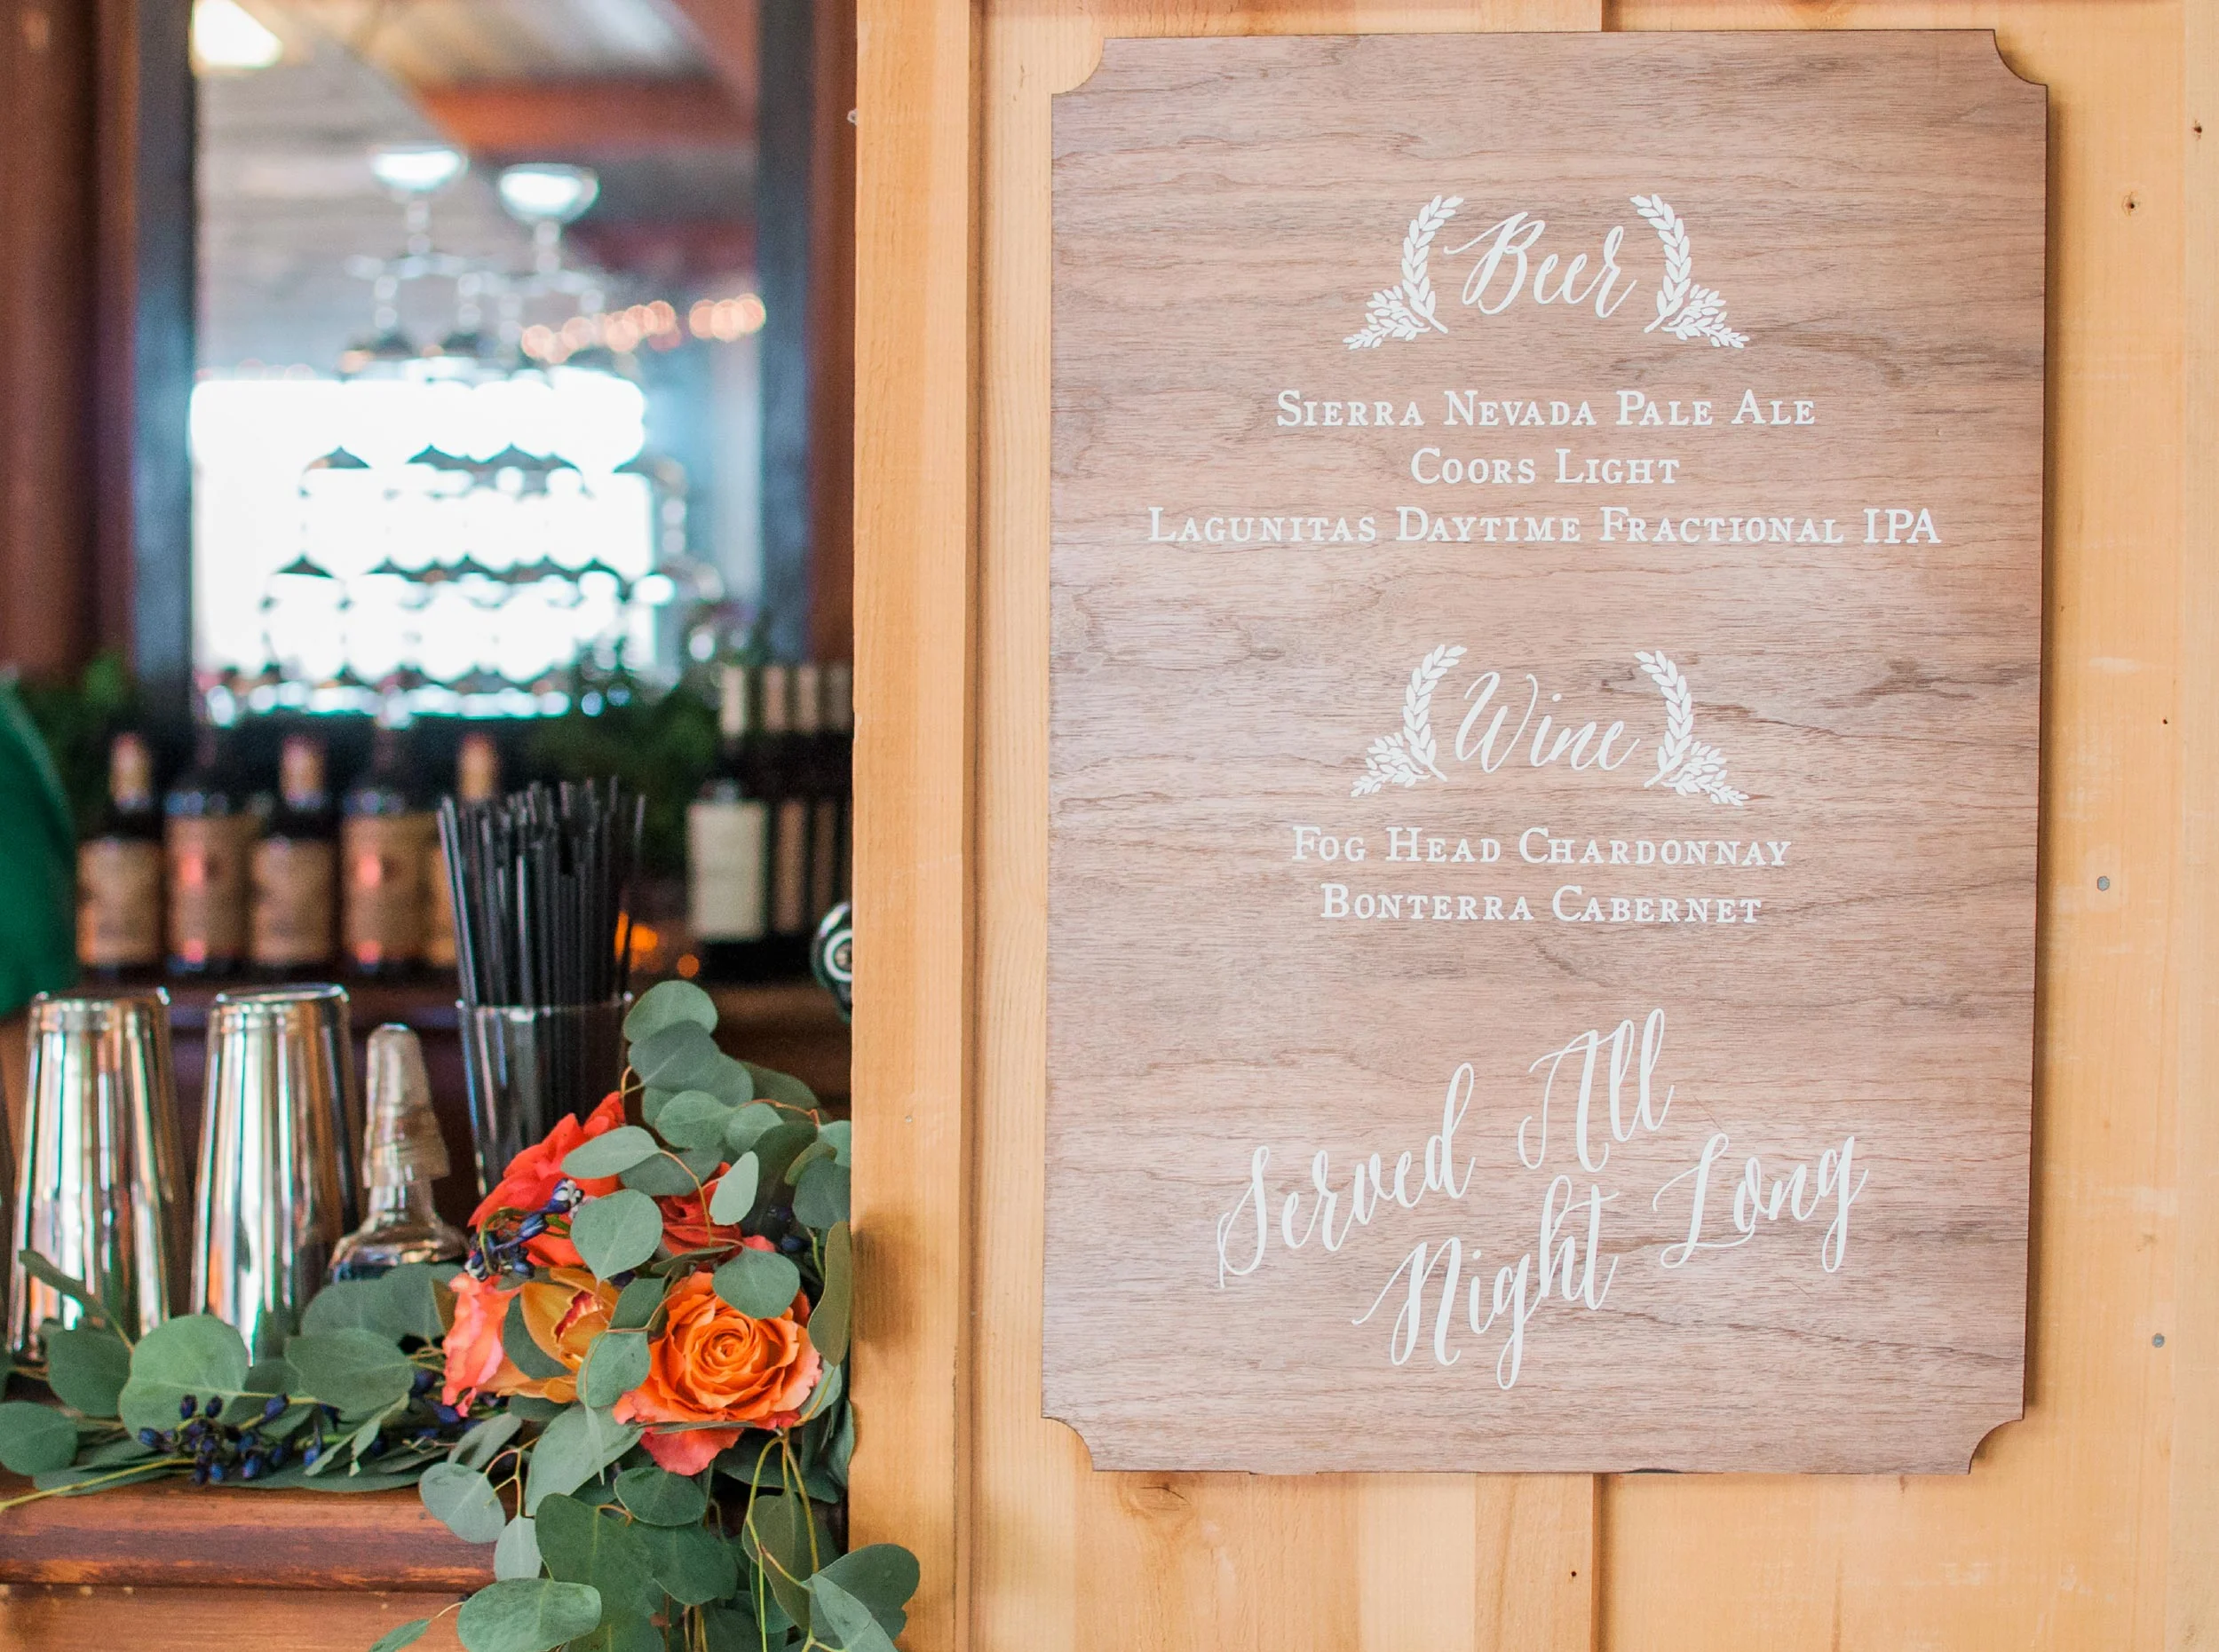 Beer
Sierra Nevada Pale Ale
Coors Light
Lagunitas Daytime Fractional IPA
Wine
Fog Head Chardonnay
Bonterra Cabernet
Served All
Night Long